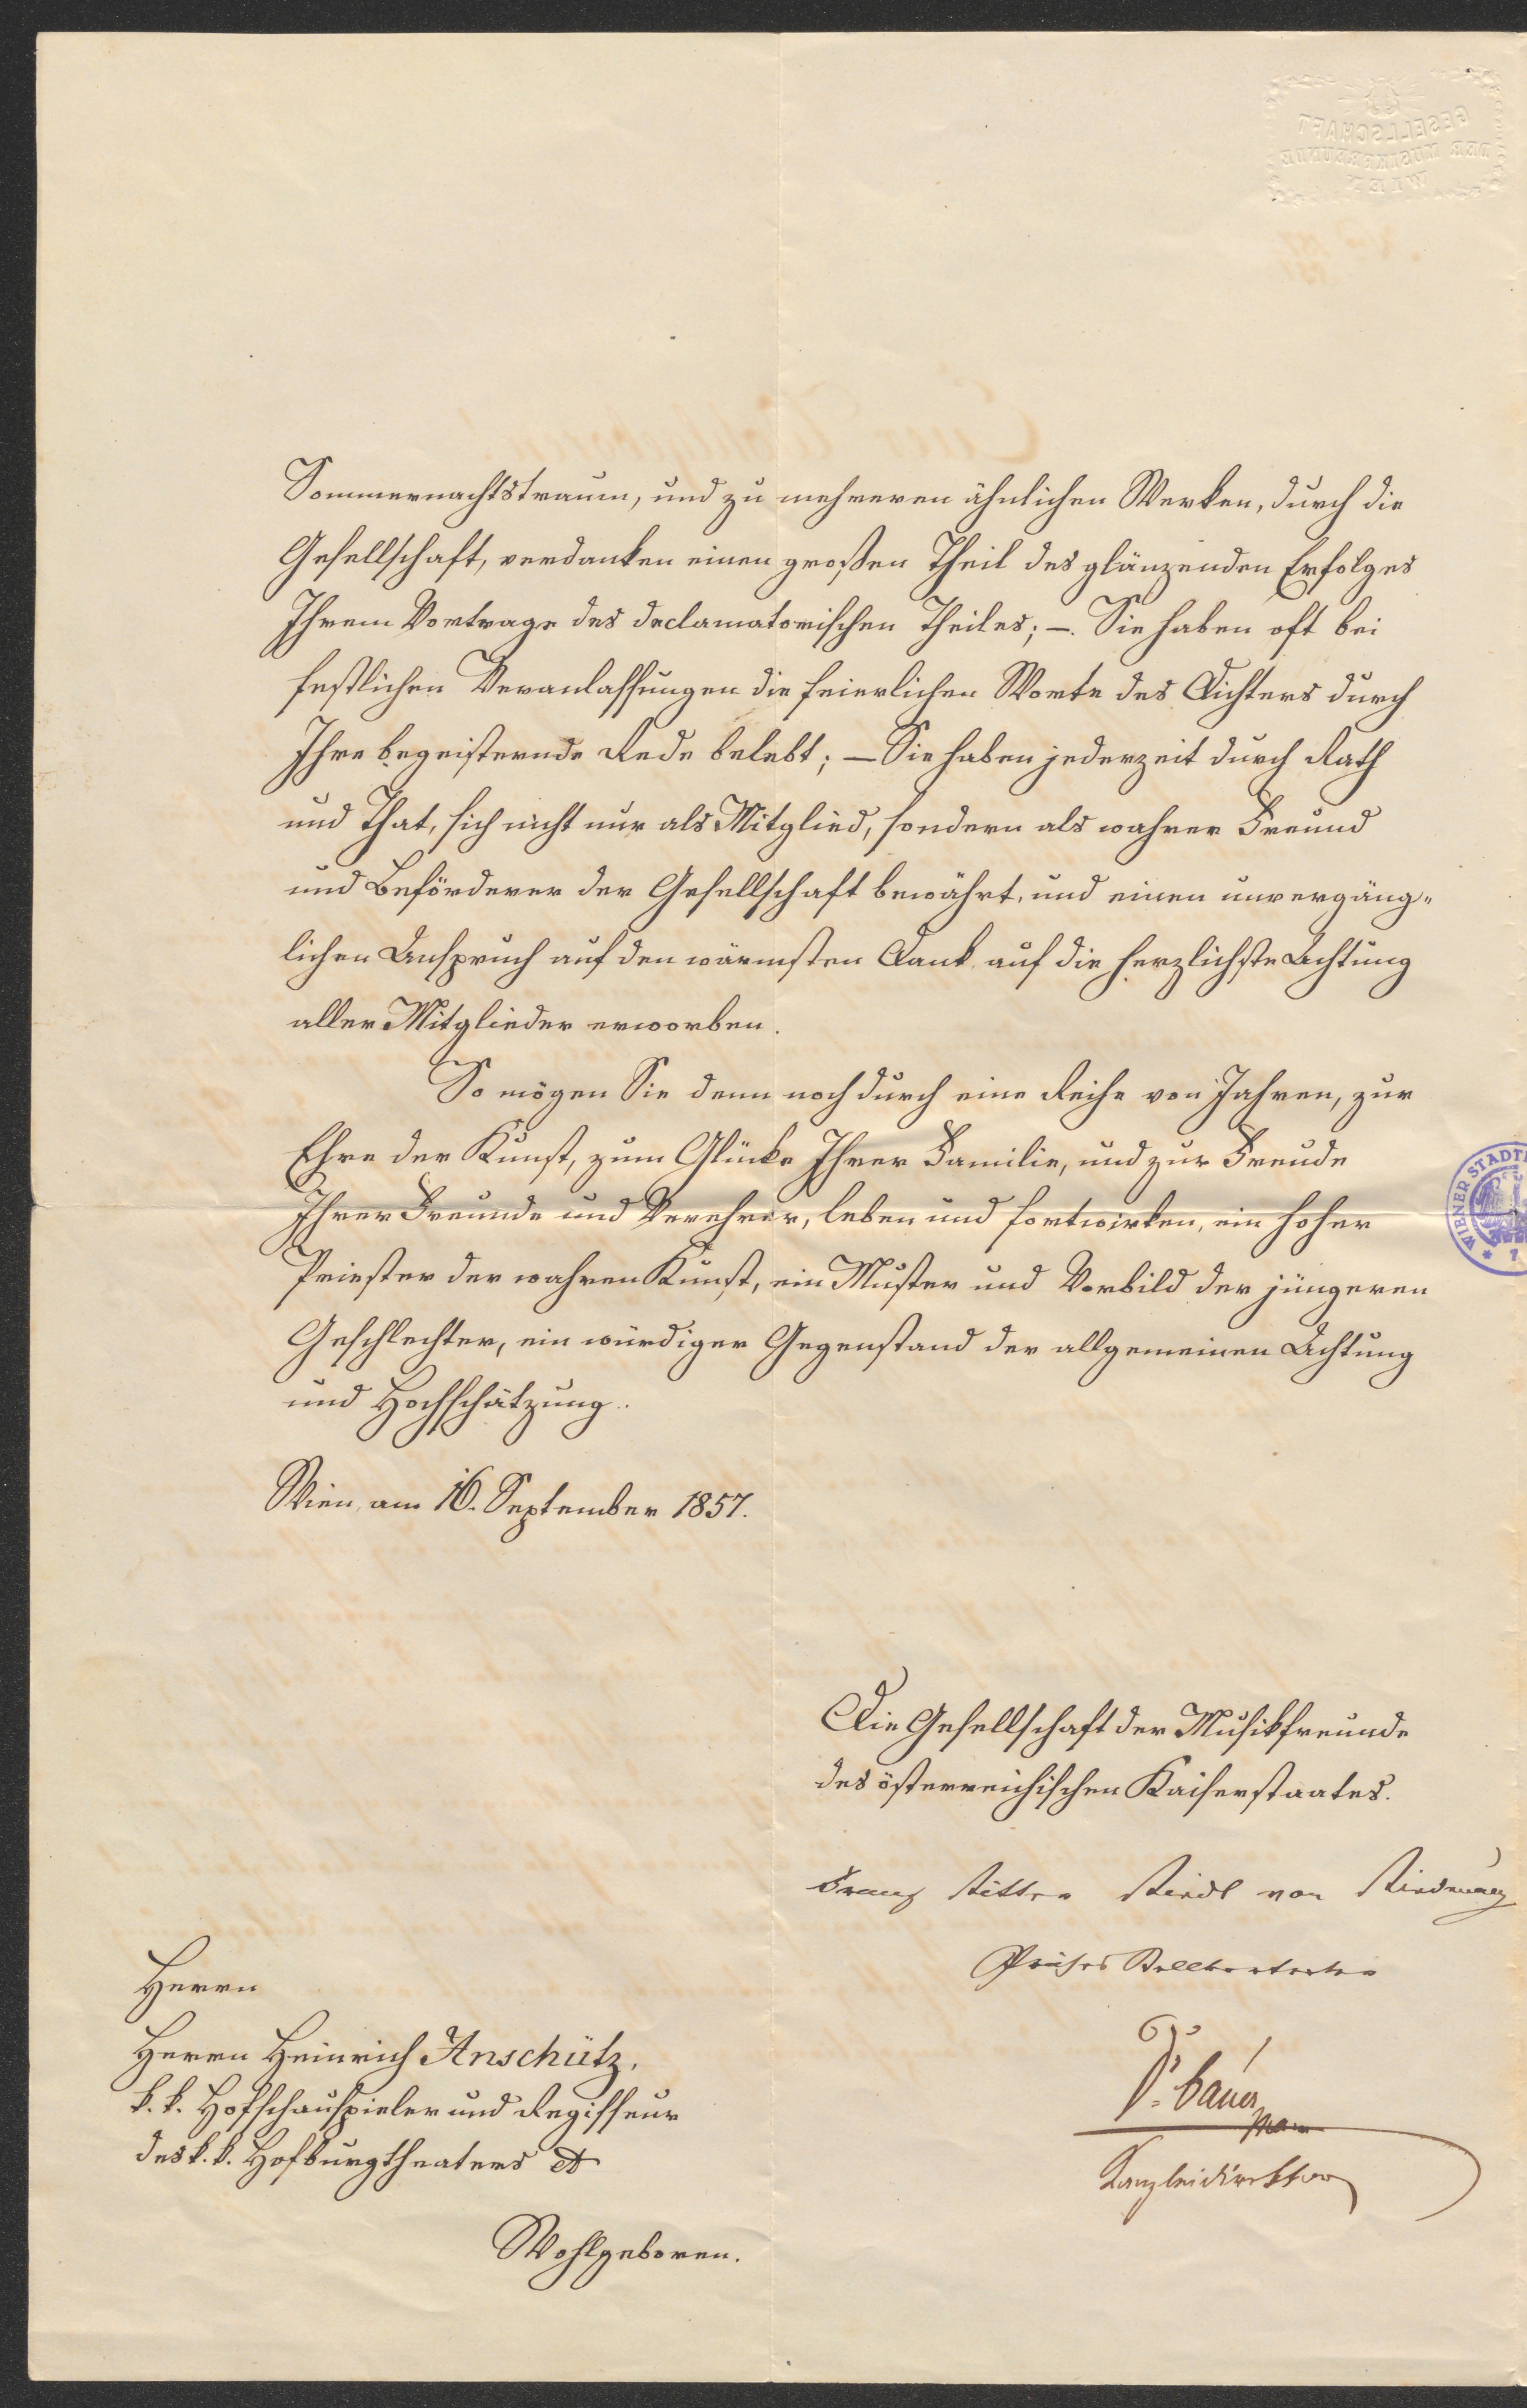 Sommernachtstraum, und zu mehreren ähnlichen Werken, durch die
Gesellschaft, verdanken einen großen Theil des glänzenden Erfolges
Ihrem Vortrage des declamatorischen Theiles; –. Sie haben oft bei
festlichen Veranlassungen die feierlichen Worte des Dichters durch
Ihre begeisternde Rede belebt; – Sie haben jederzeit durch Rath
und That, sich nicht nur als Mitglied, sondern als wahrer Freund
und Beförderer der Gesellschaft bewährt, und einen unvergäng-
lichen Anspruch auf den wärmsten Dank auf die herzlichste Achtung
aller Mitglieder erworben.
So mögen Sie denn noch durch eine Reihe von Jahren, zur
Ehre der Kunst, zum Glücke Ihrer Familie, und zur Freude
Ihrer Freunde und Verehrer, leben und fortwirken, ein hoher
Priester der wahren Kunst, ein Muster und Vorbild der jüngeren
Geschlechter, ein würdiger Gegenstand der allgemeinen Achtung
und Hochschätzung.
Wien, am 16. September 1857.
Die Gesellschaft der Musikfreunde
des österreichischen Kaiserstaates.
Franz Ritter Riedl von
Präses Stellvertreter
Dr. Bauer
Kanzleidirektor
Herrn
Herrn Heinrich Anschütz,
k. k. Hofschauspieler und Regisseur
des k. k. Hofburgtheaters
Wohlgeboren.
GESELLSCHAFT
DER MUSIKFREUNDE
WIEN
WIENER STADT